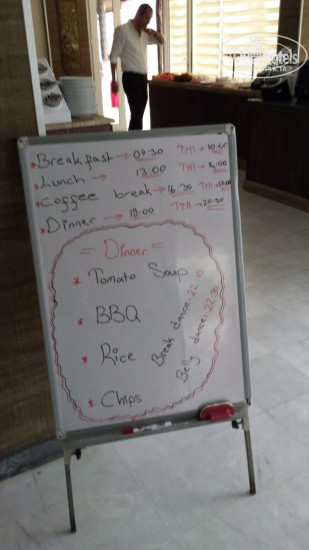 * Breakfast → 07:30 Till → 10:00
* Lunch → 13:00 Till → 14:00
* Coffee break → 16:30 Till → 17:00
* Dinner → 19:00 Till → 20:30
= Dinner =
* Tomato Soup
* BBQ
* Rice
* Chips
Break dance: 22:10
Belly dance: 22:30